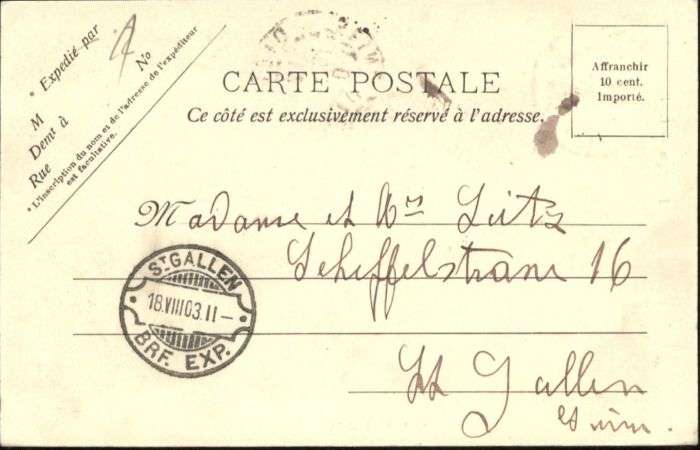 * Expédié par
M
No
Demt à
Rue
* L'inscription du nom et de l'adresse de l'expéditeur
est facultative.
CARTE POSTALE
Ce côté est exclusivement réservé à l'adresse.
Affranchir
10 cent.
Importé.
Madame et Mr Lutz
Scheffelstrasse 16
St Gallen
ST GALLEN
18.VIII 03.11–
BRF. EXP.